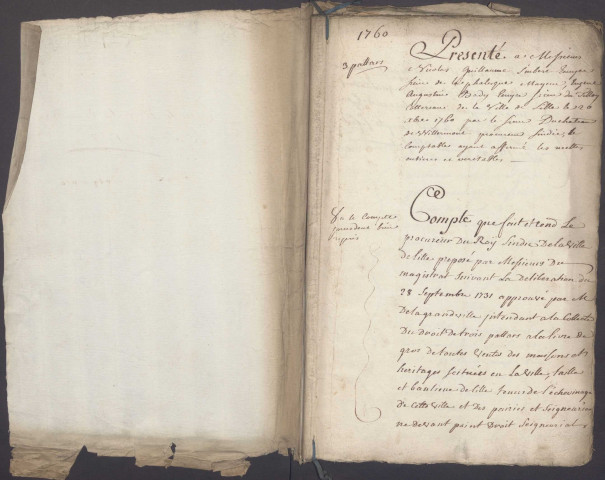 1760
3 pattars
Presenté a Messieurs
Nicolas Guillaume
sieur de Mayeur,
Augustin sieur du
de la Ville de Lille le
xbre 1760 par le sieur Duchateau
de Willermont procureur sindic, le
comptable ayant affirmé les recettes
entieres et veritables
Vu le Compte
precedent
Compte que fait et rend Le
procureur Du Roy Sindic De la Ville
de Lille preposé par Messieurs Du
magistrat suivant La Deliberation du
28 Septembre 1731 approuvée par Mr
Delagrandville intendant a la Collecte
Du Droit de trois pattars a la livre de
gros de toutes ventes des maisons et
heritages scituées en La Ville, taille
et banlieue de Lille tenus de l'echevinage
de cette Ville et des pairies et Seigneuries
ne devant point Droit Seigneurial,